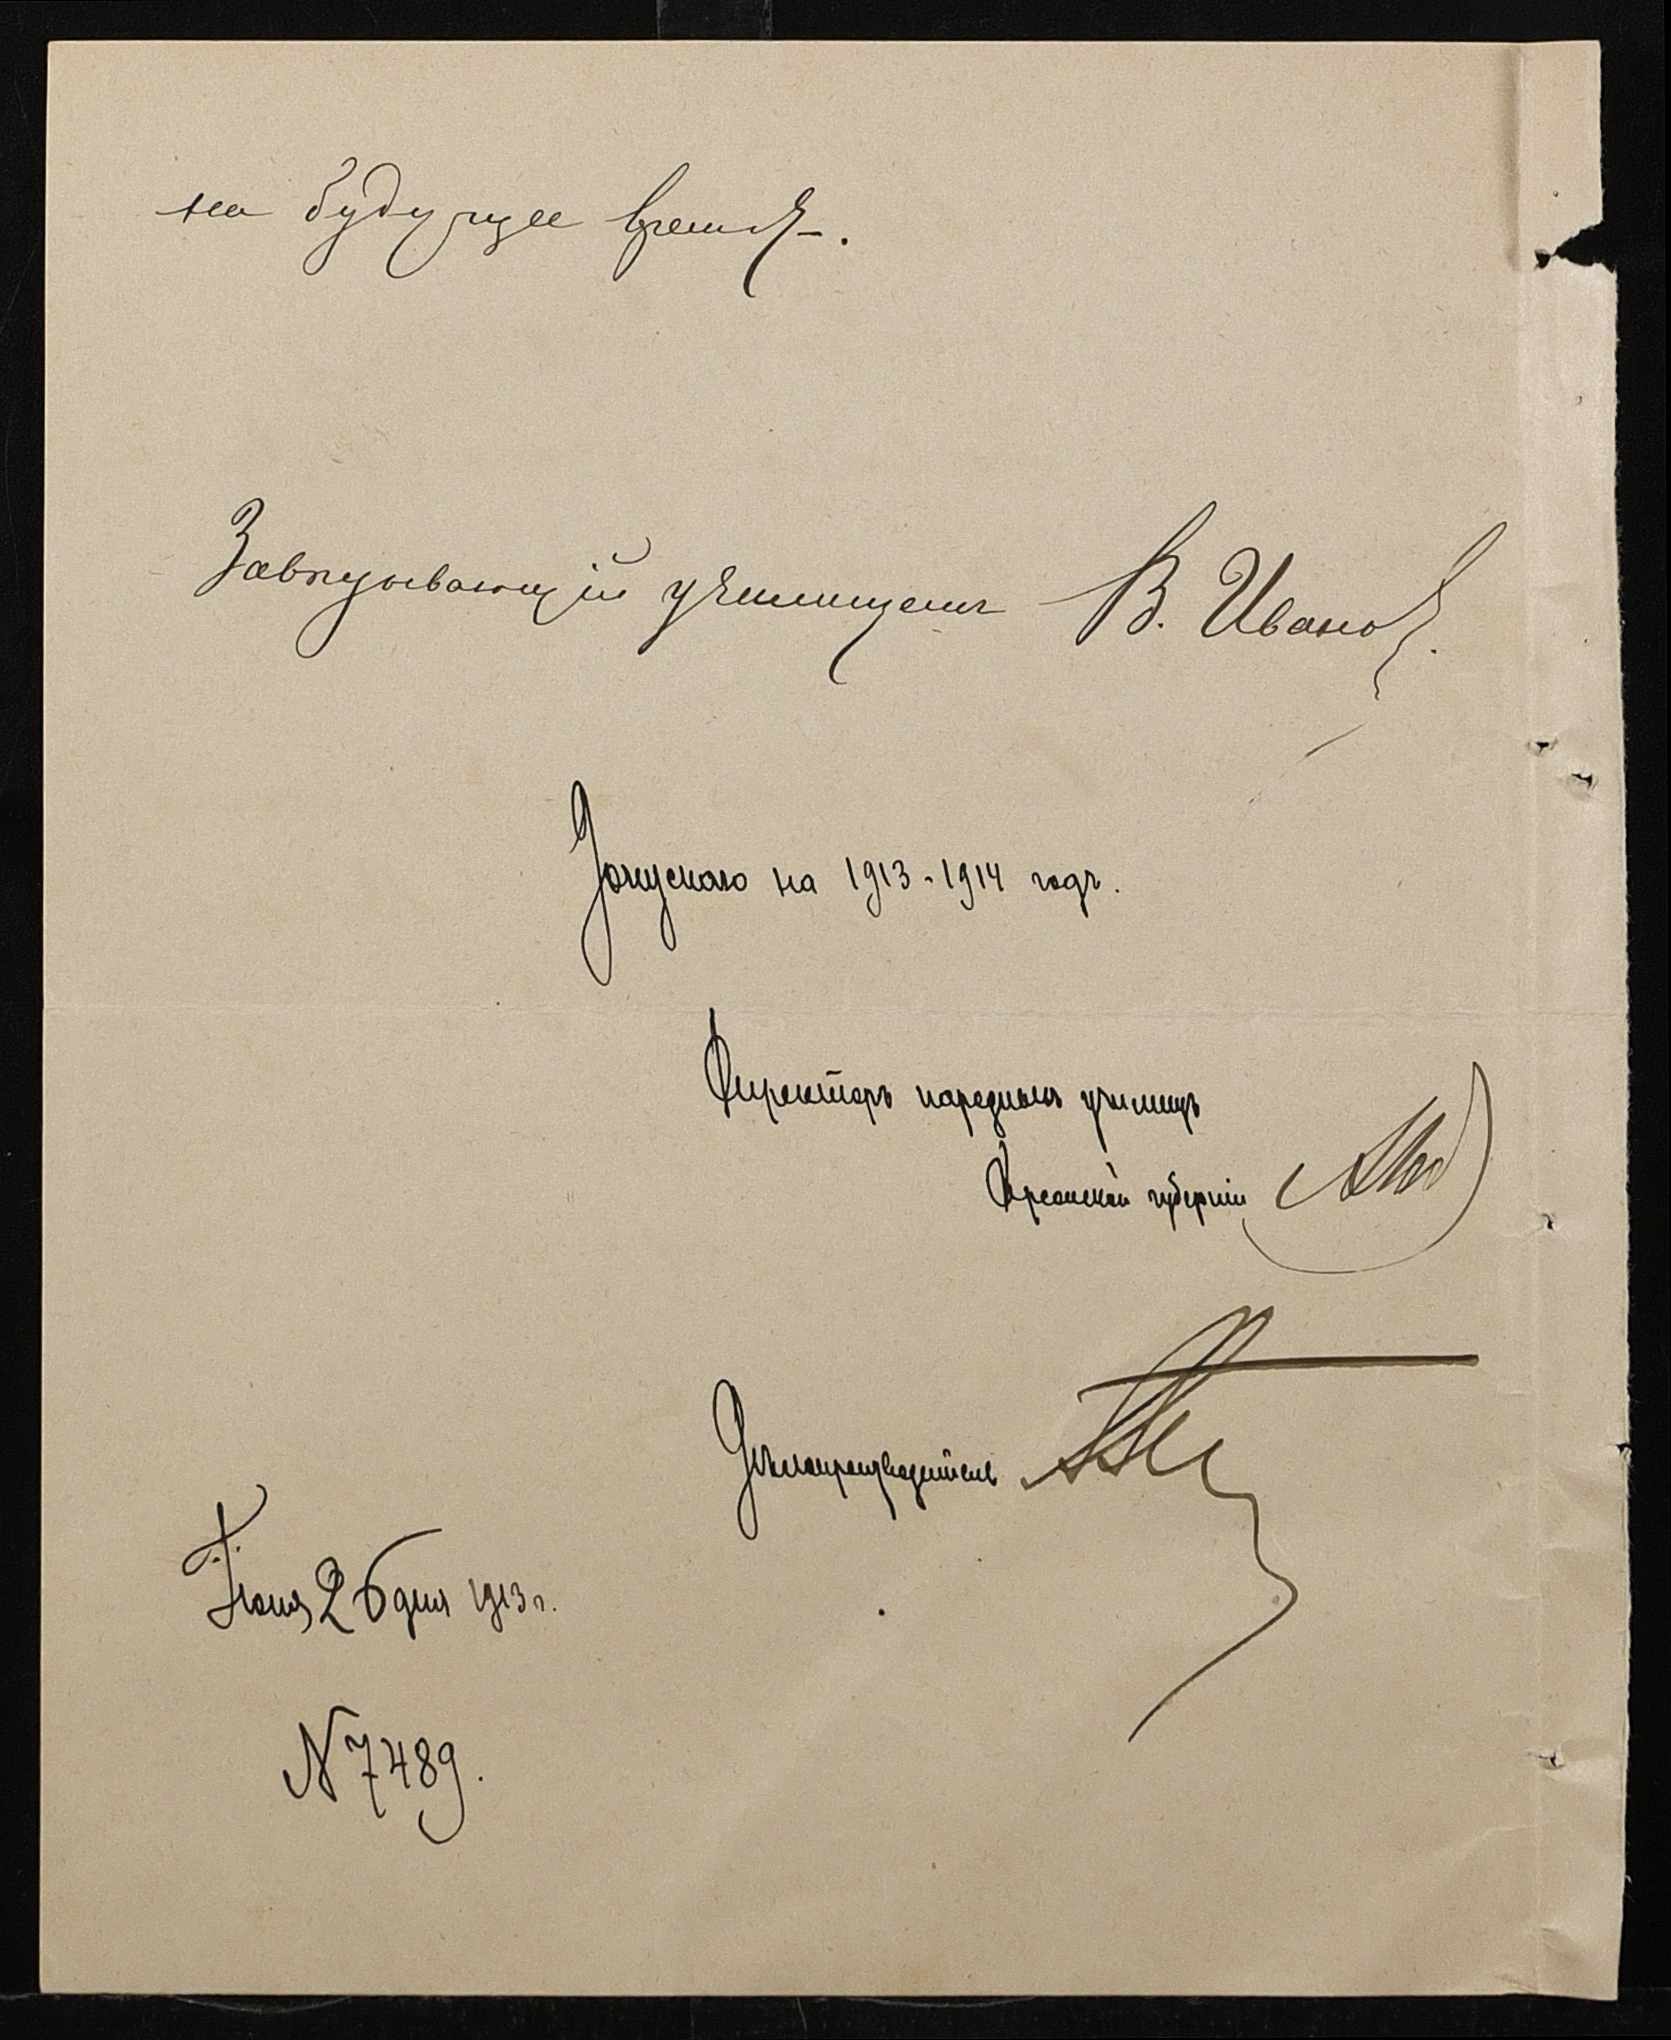 на будущее время.
Завѣдывающій училищемъ В. Ивановъ.
Допускаю на 1913-1914 годъ.
Директоръ народныхъ училищъ
Херсонской губерніи
Дѣлопроизводитель
Іюня 26 дня 1913 г.
N 7489.